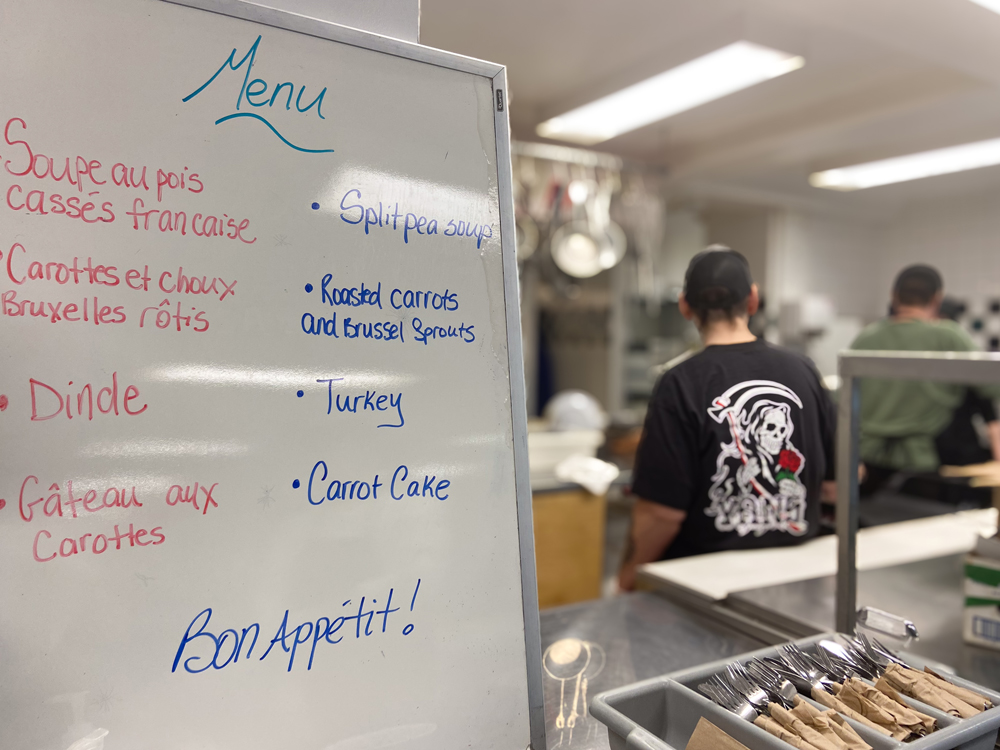 Menu
Soupe au pois
cassés francaise
Carottes et choux
Bruxelles rôtis
• Dinde
• Gâteau aux
Carottes
• Split pea soup
• Roasted carrots
and Brussel Sprouts
• Turkey
• Carrot Cake
Bon Appétit!